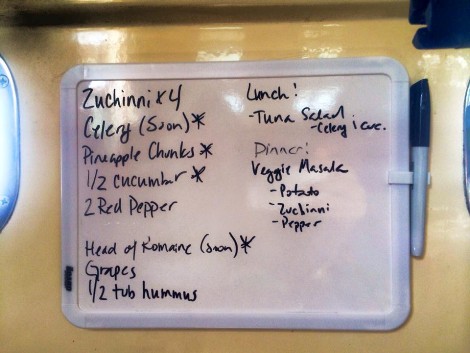 Zuchinni x 4
Celery (Soon) *
Pineapple Chunks *
1/2 cucumber *
2 Red Pepper
Head of Romaine (soon) *
Grapes
1/2 tub hummus
Lunch!
- Tuna Salad
- Celery
Dinner!
Veggie Masala
- Potato
- Zuchinni
- Pepper